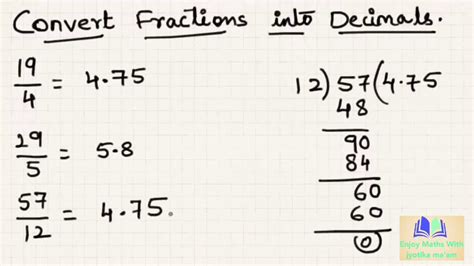 Convert Fractions into Decimals.
19/4 = 4.75
29/5 = 5.8
57/12 = 4.75
12) 57 (4.75
48
90
84
60
60
0
Enjoy Maths With
jyotika ma'am